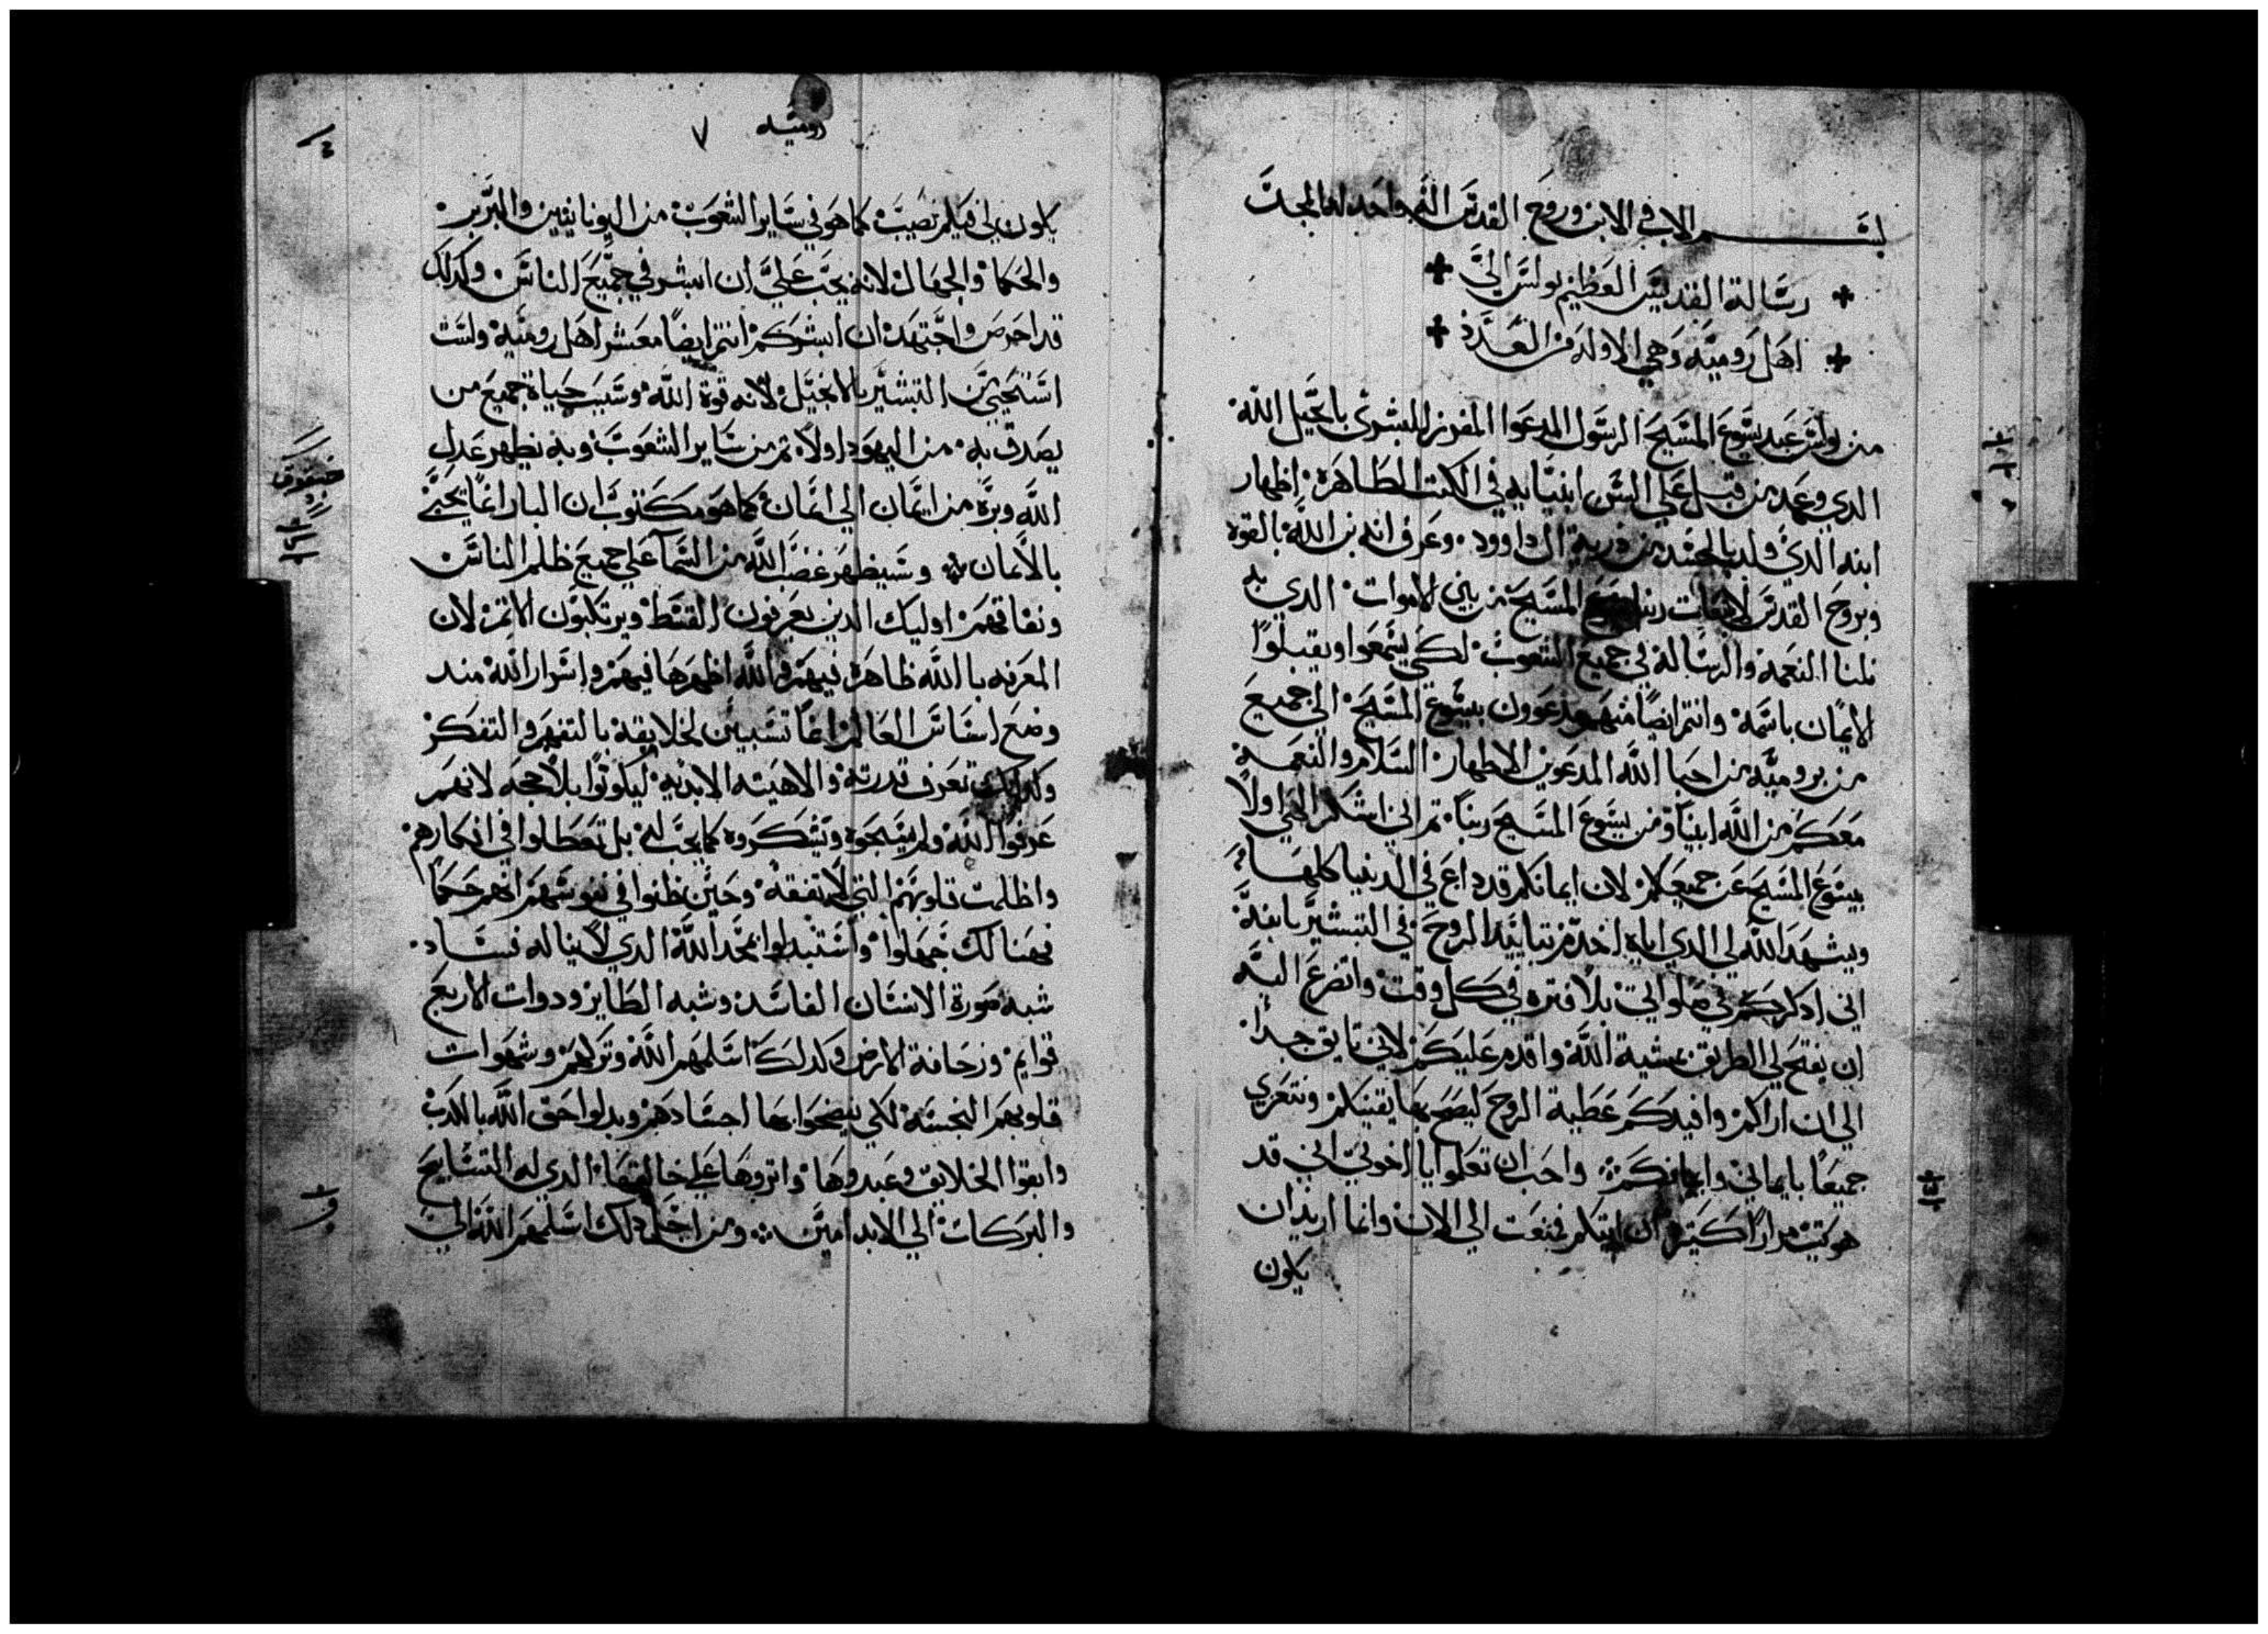 بســـم الاب والابن وروح القدس اله واحد له المجد
رسالة القديس العظيم بولس الي
اهل روميه وهي الاوله من العدد
من بولس عبد يسوع المسيح الرسول المدعوا المفرز للبشري بانجيل الله
الدي وعد من قبل علي السن انبيايه في الكتب الطاهرة اظهار
ابنه الدي ولد بالجسد من درية ال داوود وعرف انه بن الله بالقوة
وبروح القدس لانبعات ربنا يسوع المسيح من بين الاموات الدي به
نلنا النعمة والرسالة في جميع الشعوب لكي يسمعوا ويقبلوا
الايمان باسمه وانتم ايضا منهم مدعوون بيسوع المسيح الي جميع
من بروميه من احبا الله المدعوين الاطهار السلام والنعمة
معكم من الله ابينا ومن يسوع المسيح ربنا تم اني اشكر الهي اولا
بيسوع المسيح عن جميعكم لان ايمانكم قد داع في الدنيا كلها
ويشهد الله لي الدي اياه اخدم بتاييد الروح في التبشير بابنه
اني ادكركم في صلواتي بلا فتره في كل وقت واتضرع اليه
ان يفتح لي الطريق بمشية الله واقدم عليكم لاني تايق جدا
الي ان اراكم وافيدكم عطية الروح ليصح بها يقينكم ونتعزي
جميعا بايماني وايمانكم واحب ان تعلموا يا اخوتي اني قد
هويت مرارا كتيره ان اتيكم فمنعت الي الان وانما اريد ان
يكون
روميه ٧
يكون لي فيكم نصيب كما هو في ساير الشعوب من اليونانيين والبربر
والحكما والجهال لانه يجب علي ان ابشر في جميع الناس وكدلك
قد احرص واجتهد ان ابشركم انتم ايضا معشر اهل روميه ولست
استحيي من التبشير بالانجيل لانه قوة الله وسبب حياة جميع من
يصدق به من اليهود اولا تم من ساير الشعوب وبه يظهر عدل
الله وبره من ايمان الي ايمان كما هو مكتوب ان البار انما يحيي
بالايمان وسيظهر غضب الله من السما علي جميع ظلم الناس
ونفاقهم اوليك الدين يعرفون القسط ويرتكبون الاتم لان
المعرفه بالله ظاهرة فيهم والله اظهرها فيهم واسرار الله مند
وضع اساس العالم انما تستبين لخلايقه بالتفهم والتفكر
وكدلك تعرف قدرته والاهيته الابديه ليكونوا بلا حجه لانهم
عرفوا الله ولم يسبحوه ويشكروه كما يجب له بل تعطلوا في افكارهم
واظلمت قلوبهم التي لا تفقه وحين ظنوا في نفوسهم انهم حكما
فهنالك جهلوا واستبدلوا بمجد الله الدي لا يناله فساد
شبه صورة الانسان الفاسد وشبه الطاير ودوات الاربع
قوايم وزحافة الارض وكدلك اسلمهم الله وتركهم وشهوات
قلوبهم النجسة لكي يفضحوا بها اجسادهم وبدلوا حق الله بالكدب
واتقوا الخلايق وعبدوها واتروها علي خالقها الدي له التسابيح
والبركات الي الابد امين ومن اجل دلك اسلمهم الله الي